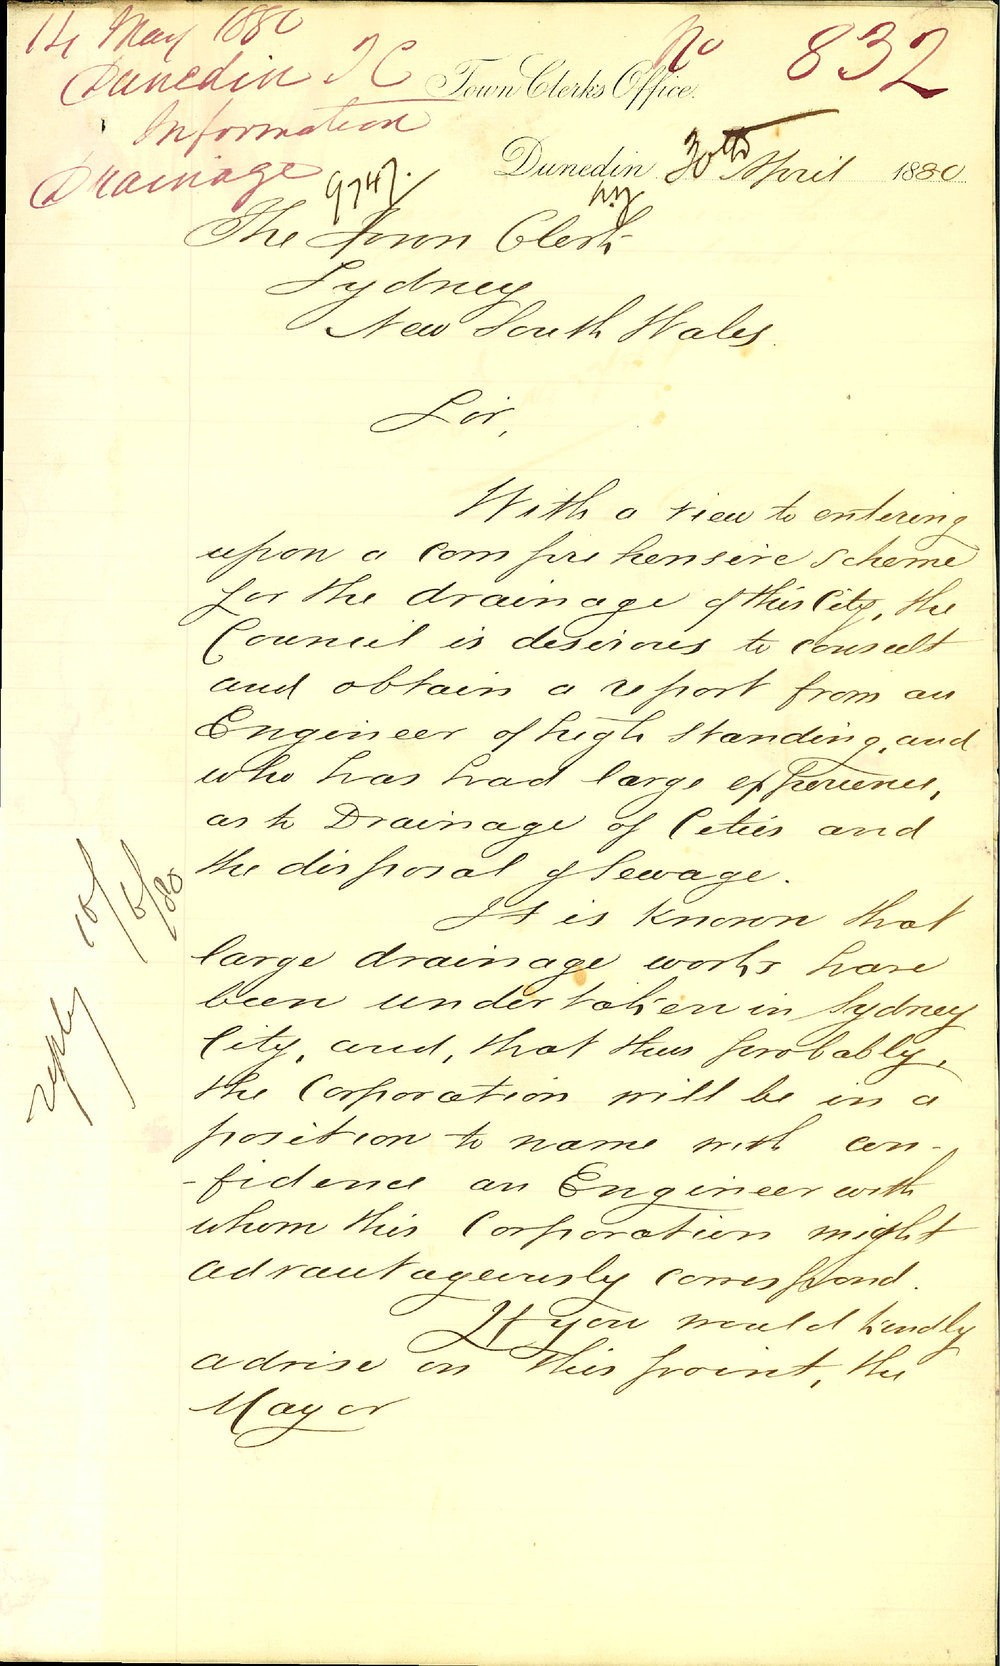 14 May 1880
No 832
Dunedin T C
Town Clerks Office.
Information
Drainage
Dunedin 30th April 1880
974/.
The Town Clerk
Sydney
New South Wales.
Sir,
With a view to entering
upon a comprehensive scheme
for the drainage of this City, the
Council is desirous to consult
and obtain a report from an
Engineer of high standing, and
who has had large experience,
as to Drainage of Cities and
the disposal of Sewage.
It is known that
large drainage works have
been undertaken in Sydney
City, and, that thus probably,
the Corporation will be in a
position to name with con-
-fidence an Engineer with
whom this Corporation might
advantageously correspond.
If you would kindly
advise on this point, the
Mayor
reply